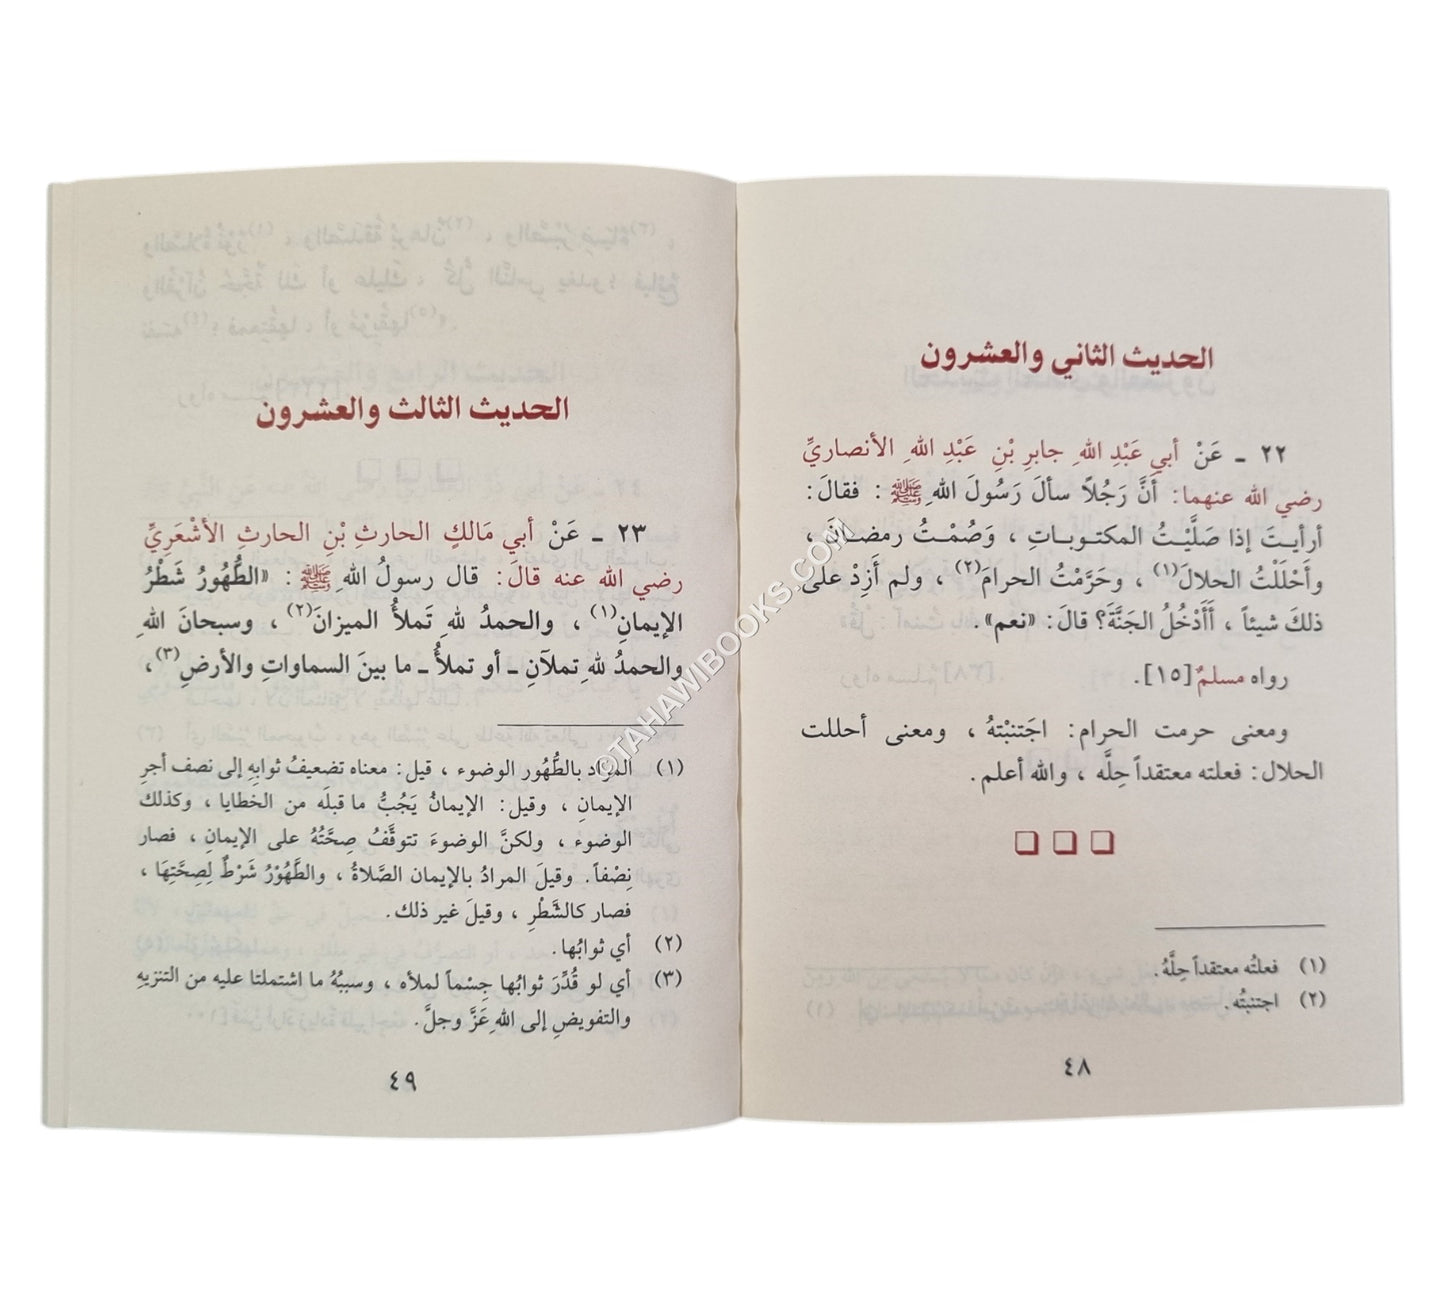 الحديث الثاني والعشرون
٢٢ ـ عَنْ أبي عَبْدِ اللهِ جابرِ بْنِ عَبْدِ اللهِ الأنصاريِّ
رضي الله عنهما: أنَّ رَجُلاً سألَ رَسُولَ اللهِ ﷺ : فقالَ:
أرأيـتَ إذا صَلَّيْـتُ المكتـوبـاتِ ، وَصُمْـتُ رمضـانَ ،
وأَحْلَلْتُ الحلالَ(١) ، وحَرَّمْتُ الحرامَ(٢) ، ولم أَزِدْ على
ذلكَ شيئاً ، أَأَدْخُلُ الجَنَّةَ؟ قالَ: «نعم».
رواه مسلمٌ [١٥].
ومعنى حرمت الحرام: اجَتنبْتهُ ، ومعنى أحللت
الحلال: فعلته معتقداً حِلَّه ، والله أعلم.
(١) فعلتُه معتقداً حِلَّهُ.
(٢) اجتنبتُه.
٤٨
الحديث الثالث والعشرون
٢٣ ـ عَنْ أبي مَالكٍ الحارثِ بْنِ الحارثِ الأشْعَرِيِّ
رضي الله عنه قالَ: قال رسولُ اللهِ ﷺ : «الطُّهُورُ شَطْرُ
الإيمانِ(١) ، والحمدُ للهِ تَملأُ الميزانَ(٢) ، وسبحانَ اللهِ
والحمدُ للهِ تملآنِ ـ أو تملأُ ـ ما بينَ السماواتِ والأرضِ(٣)،
(١) المُراد بالطُّهُور الوضوء ، قيل: معناه تضعيفُ ثوابِهِ إلى نصف أجرِ
الإيمانِ ، وقيل: الإيمانُ يَجُبُّ ما قبلَه من الخطايا ، وكذلك
الوضوء ، ولكنَّ الوضوءَ تتوقَّفُ صِحَّتُهُ على الإيمانِ ، فصار
نِصْفاً. وقيلَ المرادُ بالإيمان الصَّلاةُ ، والطَّهُوْرُ شَرْطٌ لِصِحَّتِهَا ،
فصار كالشَّطْرِ ، وقيلَ غير ذلك.
(٢) أي ثوابُها.
(٣) أي لو قُدِّرَ ثوابُها جِسْماً لملأه ، وسببُهُ ما اشتملتا عليه من التنزيهِ
والتفويضِ إلى اللهِ عَزَّ وجلَّ.
٤٩
©TAHAWIBOOKS.COM